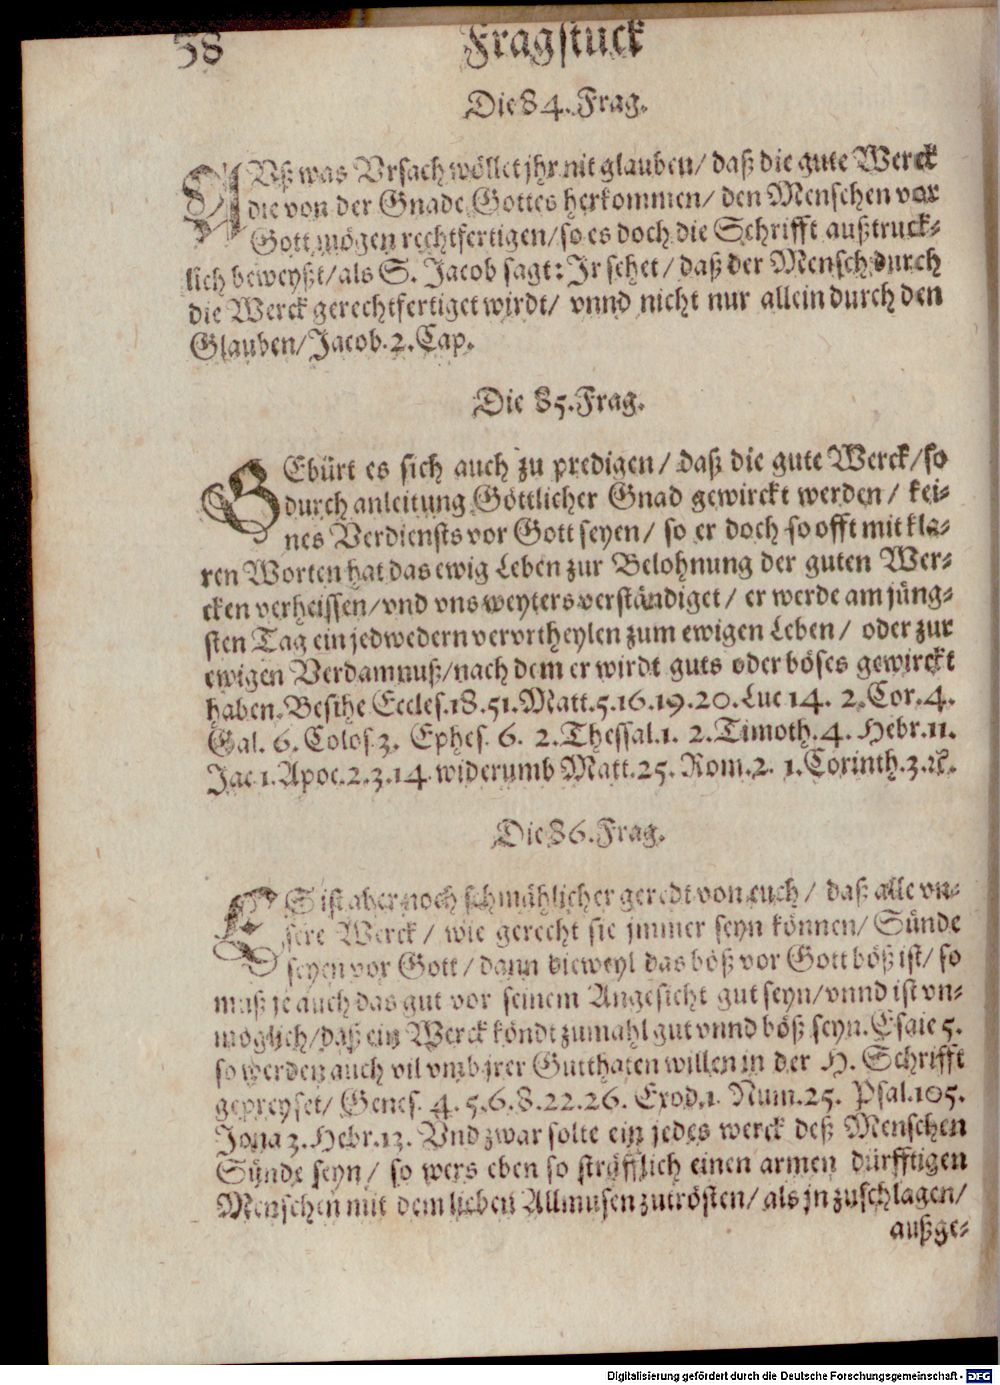 58 Fragstuck
Die 84. Frag.
AUß was Vrsach wöllet jhr nit glauben/ daß die gute Werck
die von der Gnade Gottes herkommen/ den Menschen vor
Gott mögen rechtfertigen/ so es doch die Schrifft außtruck-
lich beweyßt/ als S. Jacob sagt: Jr sehet/ daß der Mensch durch
die Werck gerechtfertiget wirdt/ vnnd nicht nur allein durch den
Glauben/ Jacob. 2. Cap.
Die 85. Frag.
GEbürt es sich auch zu predigen/ daß die gute Werck/ so
durch anleitung Göttlicher Gnad gewirckt werden/ kei-
nes Verdiensts vor Gott seyen/ so er doch so offt mit kla-
ren Worten hat das ewig Leben zur Belohnung der guten Wer-
cken verheissen/ vnd vns weyters verständiget/ er werde am jüng-
sten Tag ein jedwedern vervrtheylen zum ewigen Leben/ oder zur
ewigen Verdamnuß/ nach dem er wirdt guts oder böses gewirckt
haben. Besihe Eccles. 18. 51. Matt. 5. 16. 19. 20. Luc 14. 2. Cor. 4.
Gal. 6. Colos. 3. Ephes. 6. 2. Thessal. 1. 2. Timoth. 4. Hebr. 11.
Jac 1. Apoc. 2. 3. 14. widerumb Matt. 25. Rom. 2. 1. Corinth. 3. ꝛc.
Die 86. Frag.
ES ist aber noch schmählicher geredt von euch/ daß alle vn-
sere Werck/ wie gerecht sie jmmer seyn können/ Sünde
seyen vor Gott/ dann dieweyl das böß vor Gott böß ist/ so
muß je auch das gut vor seinem Angesicht gut seyn/ vnnd ist vn-
möglich/ daß ein Werck köndt zumahl gut vnnd böß seyn. Esaie 5.
so werden auch vil vmb jrer Gutthaten willen in der H. Schrifft
gepreyset/ Genes. 4. 5. 6. 8. 22. 26. Exod. 1. Num. 25. Psal. 105.
Jona 3. Hebr. 13. Vnd zwar solte ein jedes werck deß Menschen
Sünde seyn/ so wers eben so sträfflich einen armen dürfftigen
Menschen mit dem lieben Allmusen zutrösten/ als jn zuschlagen/
außge-
Digitalisierung gefördert durch die Deutsche Forschungsgemeinschaft - DFG